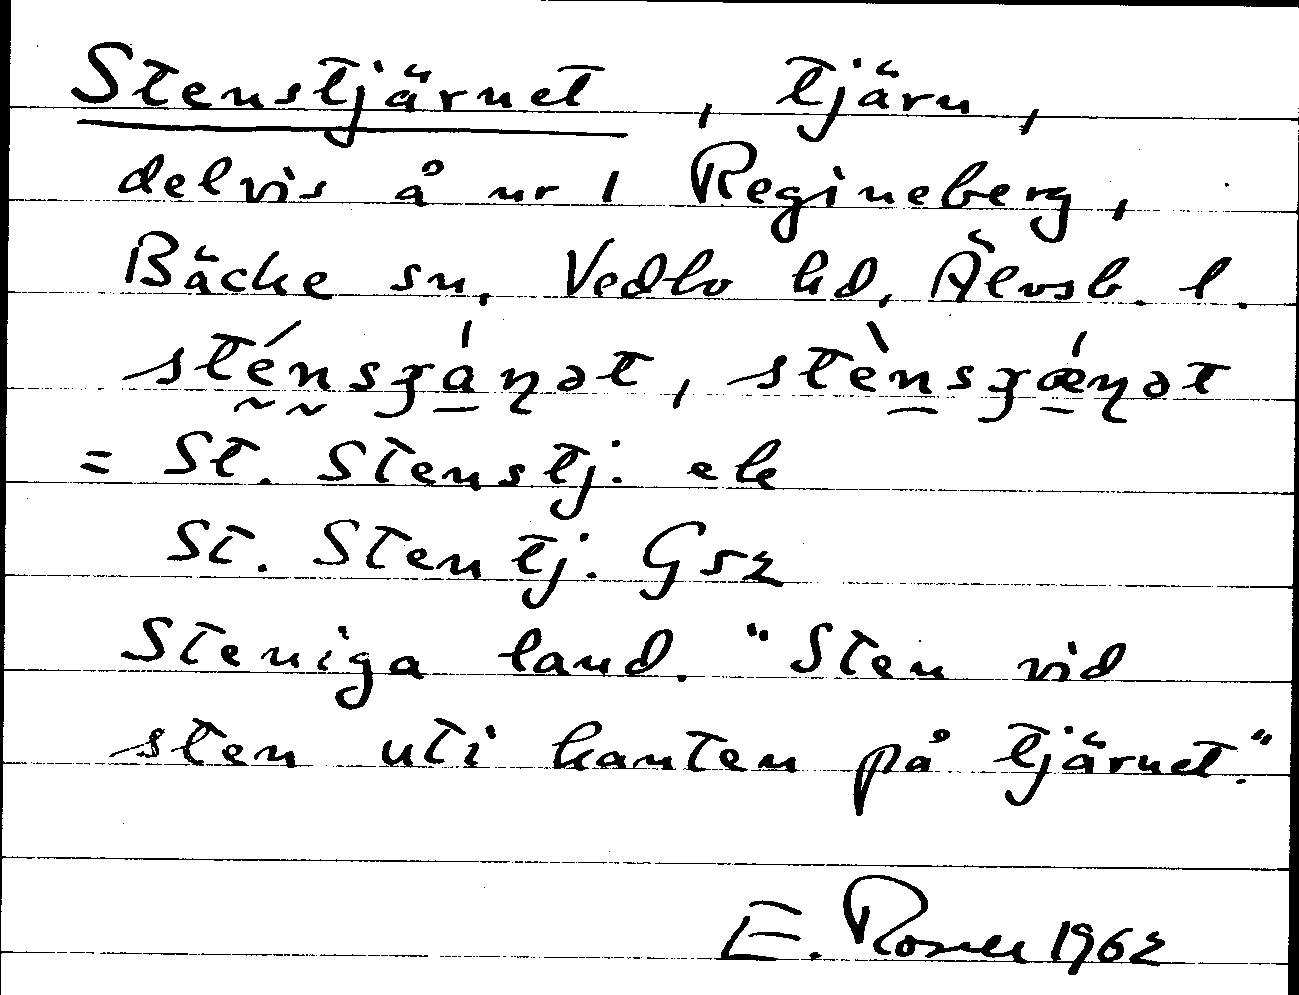 Stenstjärnet, tjärn,
delvis å nr 1 Regineberg,
Bäcke sn, Vedbo hd, Älvsb. l.
= St. Stenstj. ek
St. Stentj. Gsz
Steniga land. "Sten vid
sten uti kanten på tjärnet."
E. Rosell 1962